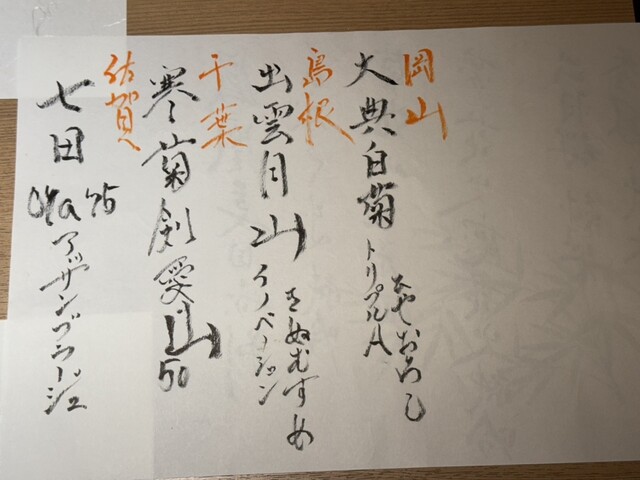 岡山
大典白菊
トリプルA
ひやおろし
島根
出雲月山
イノベーション
きぬむすめ
千葉
寒菊剣愛山
50
佐賀
七田
75
アッサンブラージュ